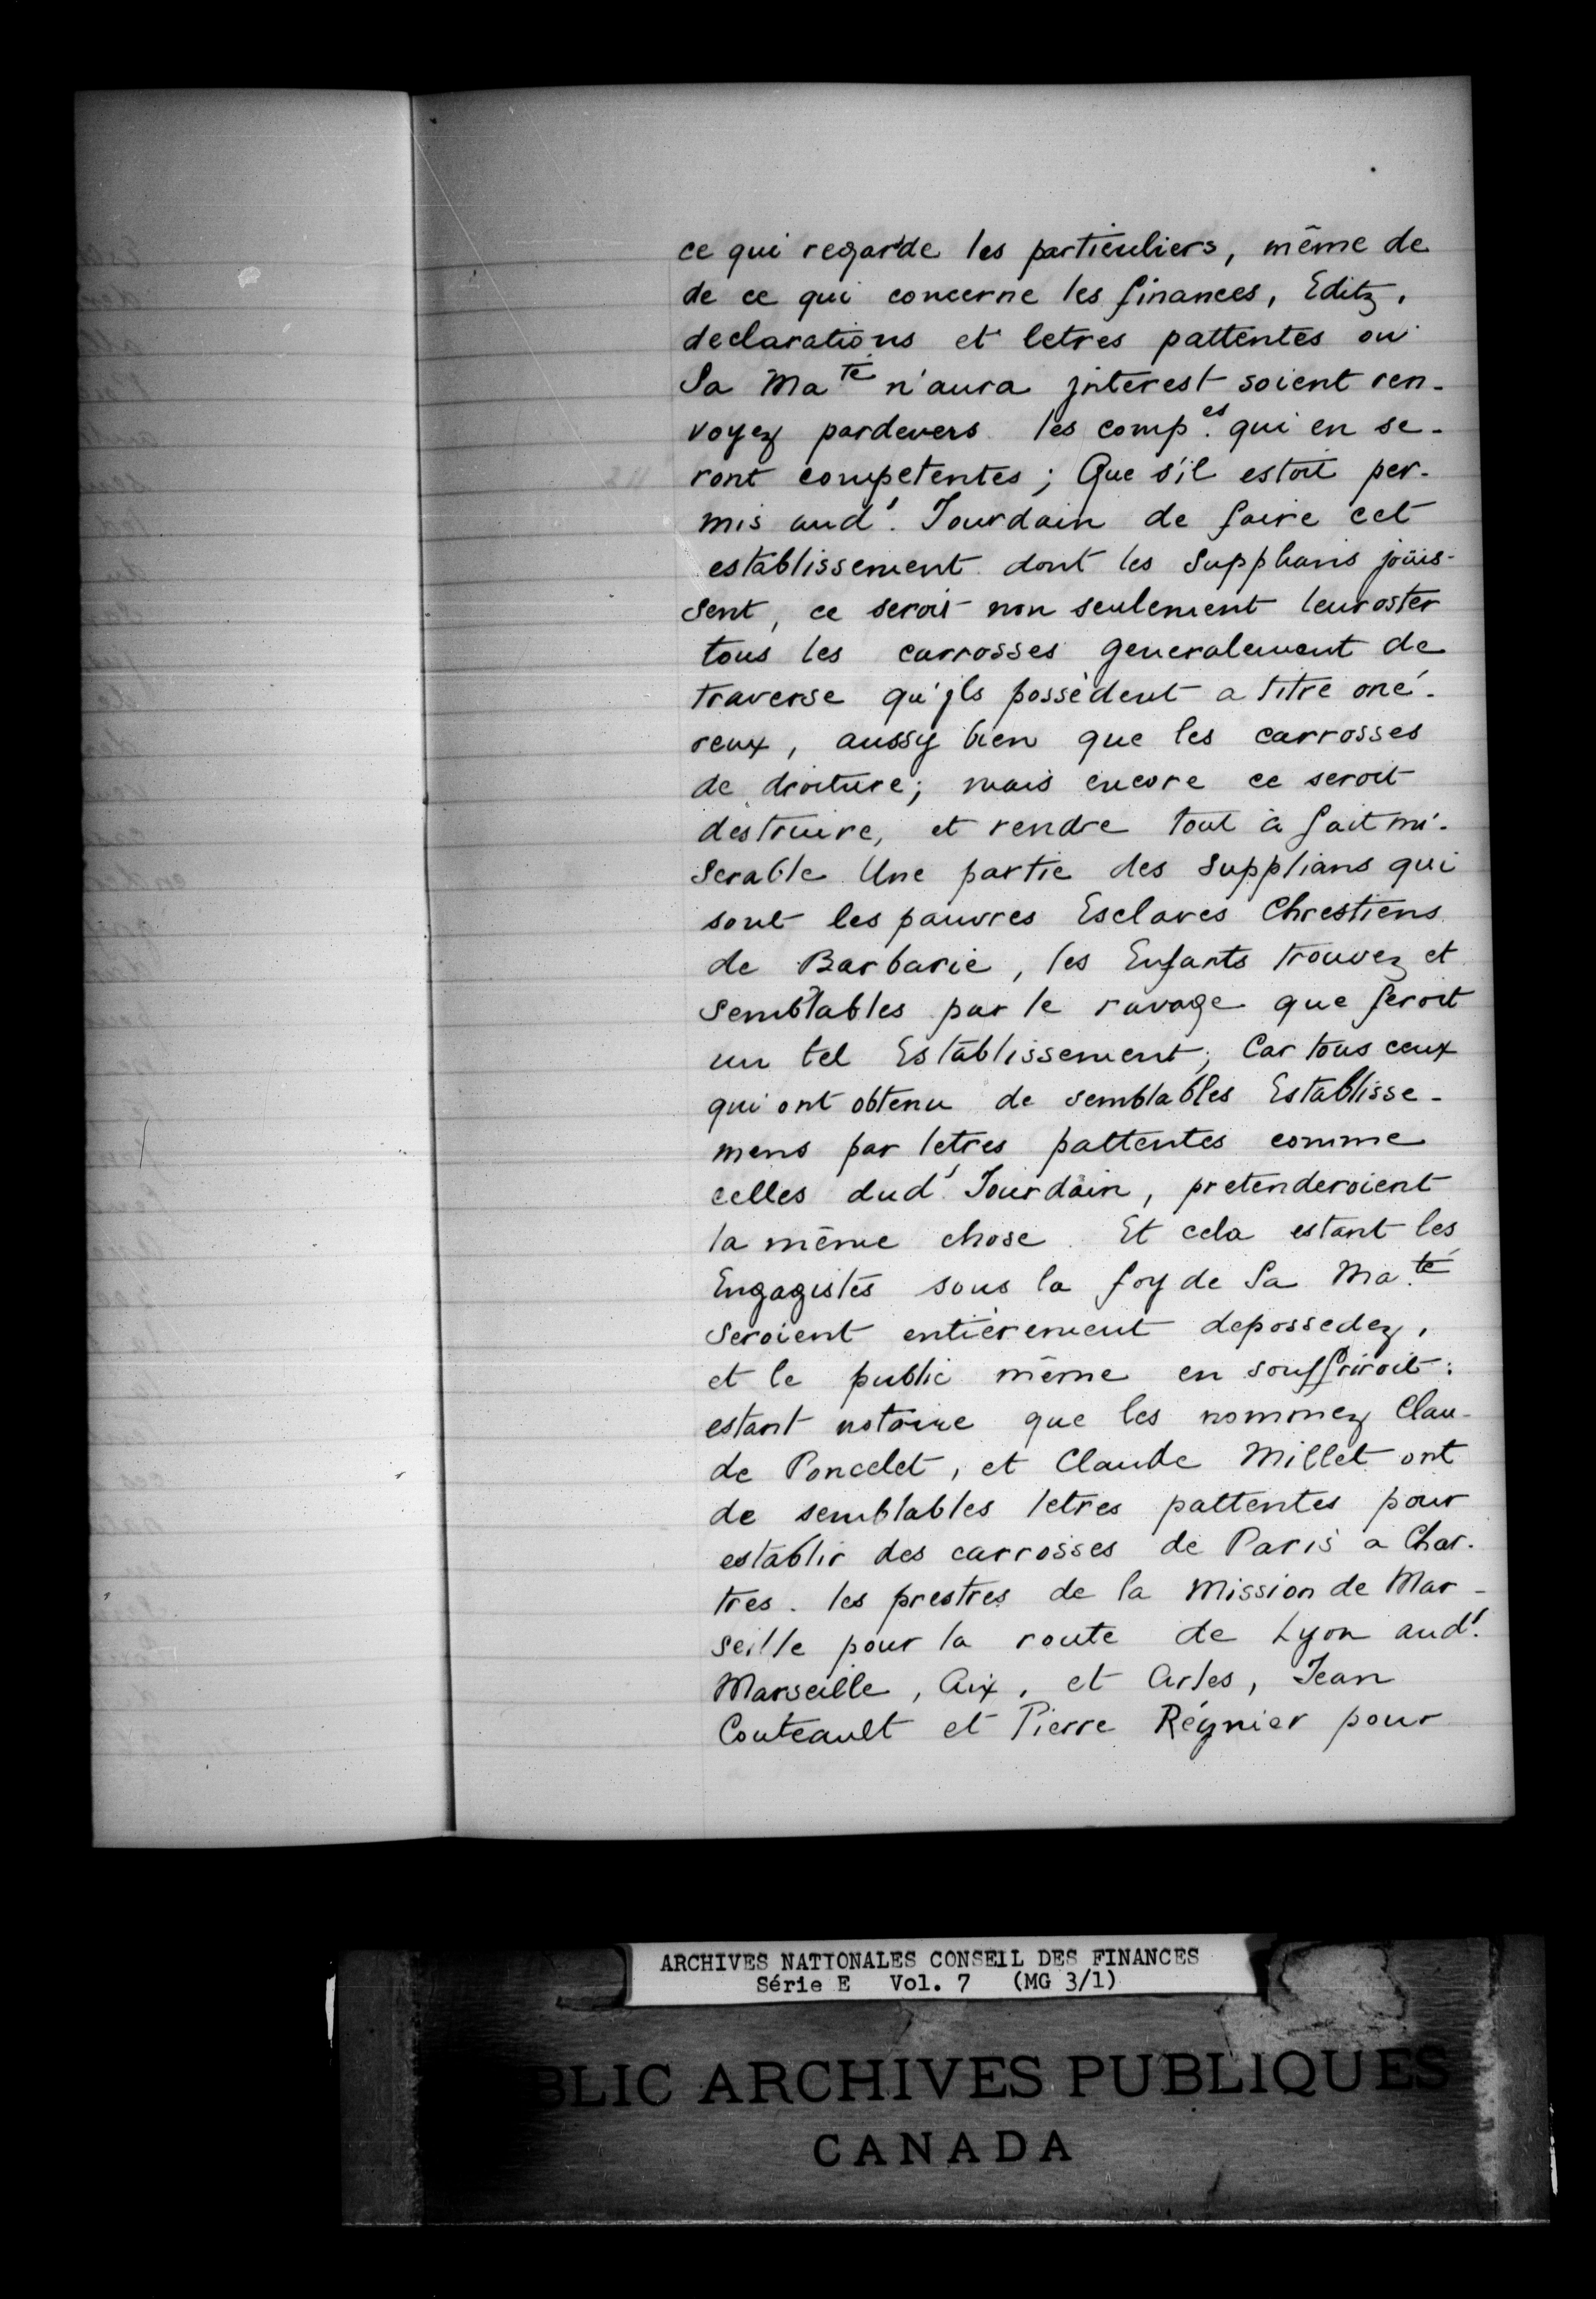 ce qui regarde les particuliers, même de
de ce qui concerne les finances, Editz,
declarations et letres pattentes ou
Sa Ma.té n'aura jnterest soient ren-
voyez pardevers les comp.es qui en se-
ront competentes; Que s'il estoit per-
mis aud.t Jourdain de faire cet
establissement dont les Supplians joüis-
sent, ce seroit non seulement leur oster
tous les carrosses generalement de
traverse qu'jls possèdent a titre oné-
reux, aussy bien que les carrosses
de droiture; mais encore ce seroit
destruire, et rendre tout à fait mi-
serable Une partie des Supplians qui
sont les pauvres Esclaves Chrestiens
de Barbarie, les Enfants trouvez et
semblables par le ravage que feroit
un tel Establissement; Car tous ceux
qui ont obtenu de semblables Establisse-
mens par letres pattentes comme
celles dud.t Jourdain, pretenderoient
la même chose. Et cela estant les
Engagistes sous la foy de Sa Ma.té
seroient entièrement depossedez,
et le public même en souffriroit:
estant notoire que les nommez Clau-
de Poncelet, et Claude Millet ont
de semblables letres pattentes pour
establir des carrosses de Paris a Char-
tres. les prestres de la Mission de Mar-
seille pour la route de Lyon aud.t
Marseille, Aix, et Arles, Jean
Couteault et Pierre Régnier pour
ARCHIVES NATIONALES CONSEIL DES FINANCES
Série E Vol. 7 (MG 3/1)
BLIC ARCHIVES PUBLIQUES
CANADA